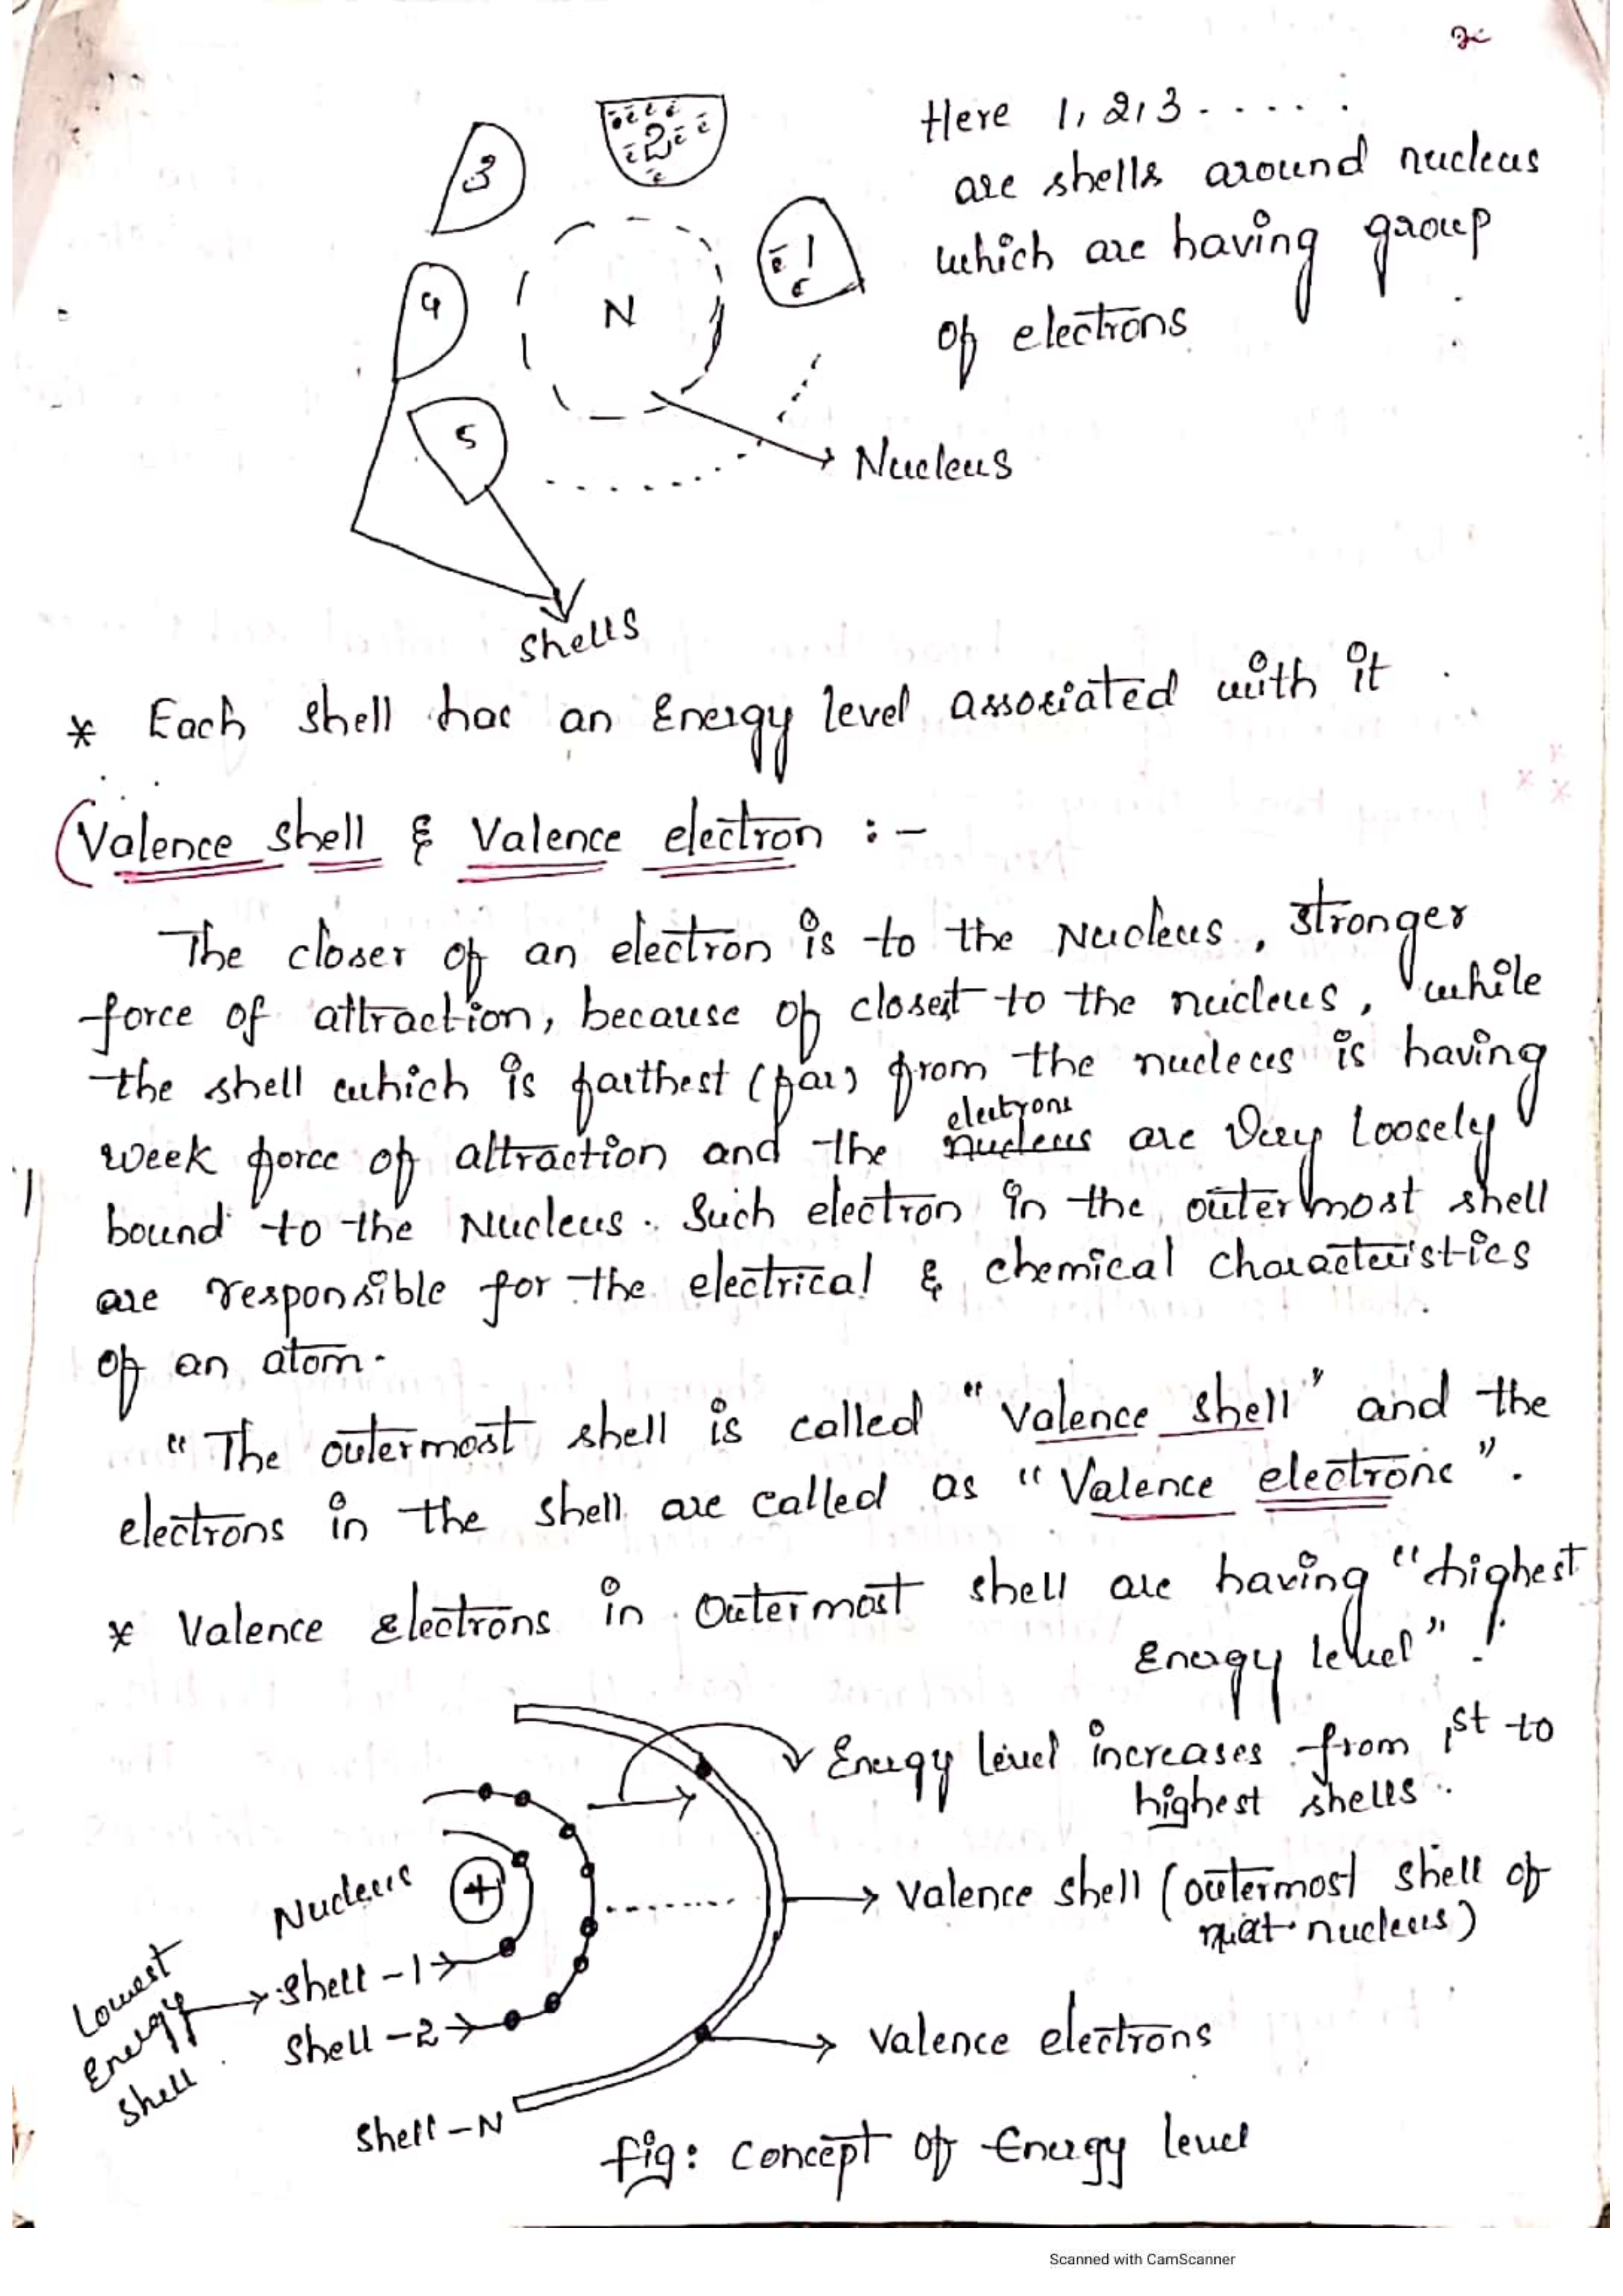 Here 1, 2, 3 - . . . .
are shells around nucleus
which are having group
of electrons
ē ē ē ē
3
2
ē 1
N
4
5
Nucleus
shells
* Each shell has an Energy level associated with it .
(Valence shell & Valence electron :-
The closer of an electron is to the Nucleus, stronger
force of attraction, because of closest to the nucleus, while
the shell which is farthest (far) from the nucleus is having
electrons
week force of attraction and the nucleus are very Loosely
bound to the Nucleus. Such electron in the outermost shell
are responsible for the electrical & chemical characteristics
of an atom.
"The outermost shell is called "Valence shell" and the
electrons in the shell are called as "Valence electrons".
* Valence Electrons in Outermost shell are having "highest
Energy level".
Energy level increases from 1st to
highest shells .
Nucleus
+
Valence shell (outermost shell of
nucleus)
Lowest
Energy
Shell
Shell-1
Shell-2
Valence electrons
Shell-N
fig: Concept of Energy level
Scanned with CamScanner